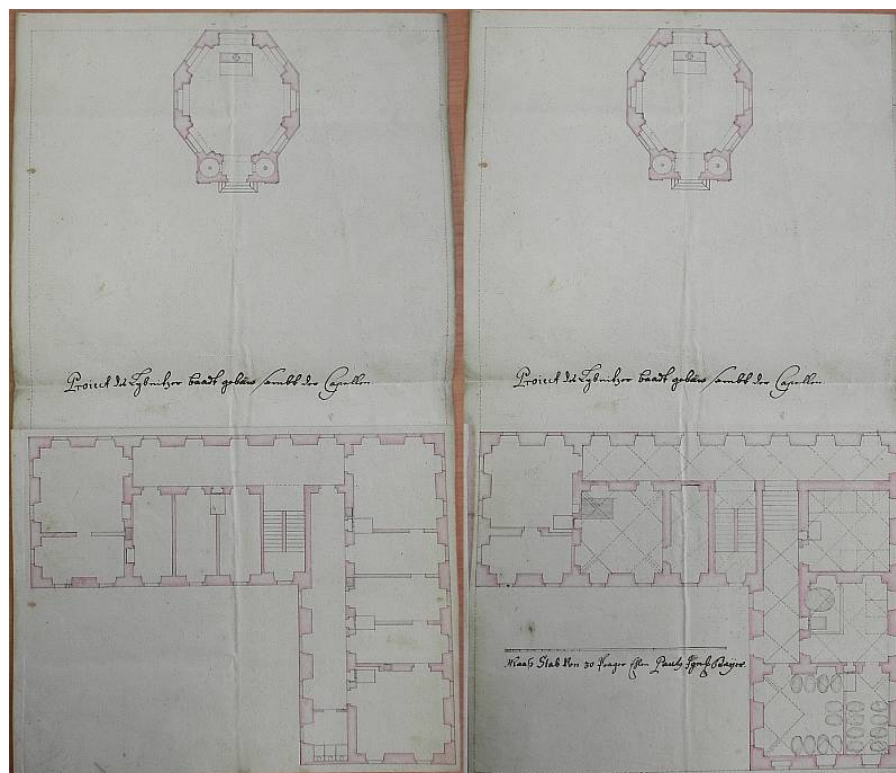 Proiect des Lybnitzer baadt gebäw sambt der Capellen
Proiect des Lybnitzer baadt gebäw sambt der Capellen
Maas Stab Von 30 Prager Ehlen Paulg Ignatz Bayer